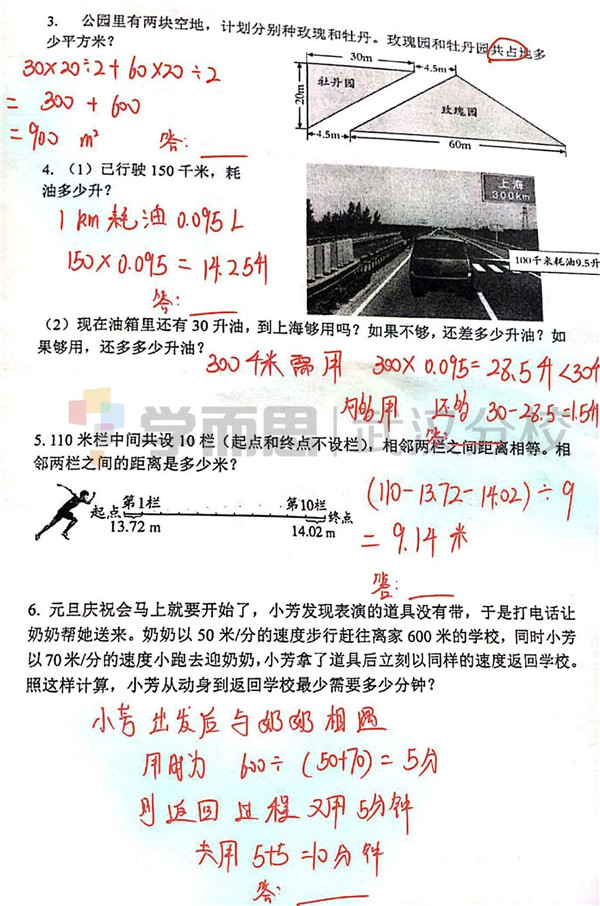 3. 公园里有两块空地，计划分别种玫瑰和牡丹。玫瑰园和牡丹园共占地多
少平方米？
30×20÷2+60×20÷2
= 300 + 600
= 900 m²
答：
30m
4.5m
牡丹园
20m
玫瑰园
4.5m
60m
4.（1）已行驶 150 千米，耗
油多少升？
1 km 耗油 0.095 L
150×0.095 = 14.25升
答：
上海
300km
100千米耗油9.5升
（2）现在油箱里还有 30 升油，到上海够用吗？如果不够，还差多少升油？如
果够用，还多多少升油？
300千米需用 300×0.095=28.5升<30升
够用 30-28.5=1.5升
答：
学而思 武汉分校
5. 110 米栏中间共设 10 栏（起点和终点不设栏），相邻两栏之间距离相等。相
邻两栏之间的距离是多少米？
起点 第1栏 第10栏 终点
13.72 m 14.02 m
(110-13.72-14.02)÷9
= 9.14 米
答：
6. 元旦庆祝会马上就要开始了，小芳发现表演的道具没有带，于是打电话让
奶奶帮她送来。奶奶以 50 米/分的速度步行赶往离家 600 米的学校，同时小芳
以 70 米/分的速度小跑去迎奶奶，小芳拿了道具后立刻以同样的速度返回学校。
照这样计算，小芳从动身到返回学校最少需要多少分钟？
小芳出发后与奶奶相遇
用时为 600÷(50+70)=5分
则返回过程又用5分钟
共用 5+5=10分钟
答：